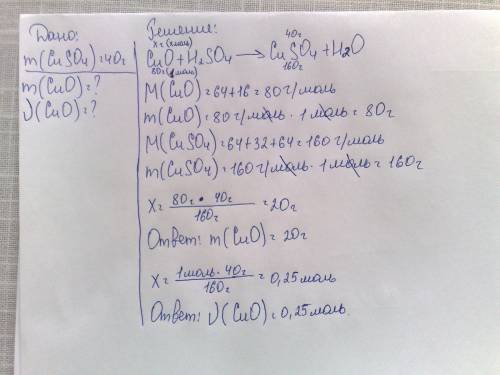 Дано:
m(CuSO4)=40г
m(CuO)=?
ν(CuO)=?
Решение:
x г (x моль) 40г
CuO+H2SO4→CuSO4+H2O
80г (1 моль) 160г
M(CuO)=64+16=80 г/моль
m(CuO)=80 г/моль · 1 моль=80г
M(CuSO4)=64+32+64=160 г/моль
m(CuSO4)=160 г/моль · 1 моль=160г
x= 80г · 40г / 160г =20г
Ответ: m(CuO)=20г
x= 1 моль · 40г / 160г =0,25 моль
Ответ: ν(CuO)=0,25 моль